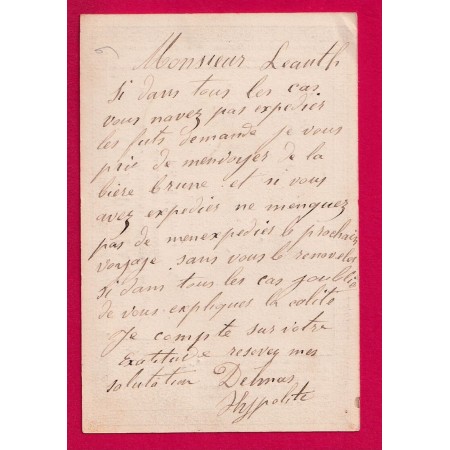 Monsieur Leauth
Si dans tous les cas
vous navez pas expedier
les futs demande je vous
prie de menvoyer de la
bière brune et si vous
avez expedier ne menquez
pas de menexpedier le prochain
voyaje sans vous le renouveler
si dans tous les cas joublie
de vous expliques la calité
Je compte sur votre
exatitude resevez mes
salutation Delmas
Hyppolite